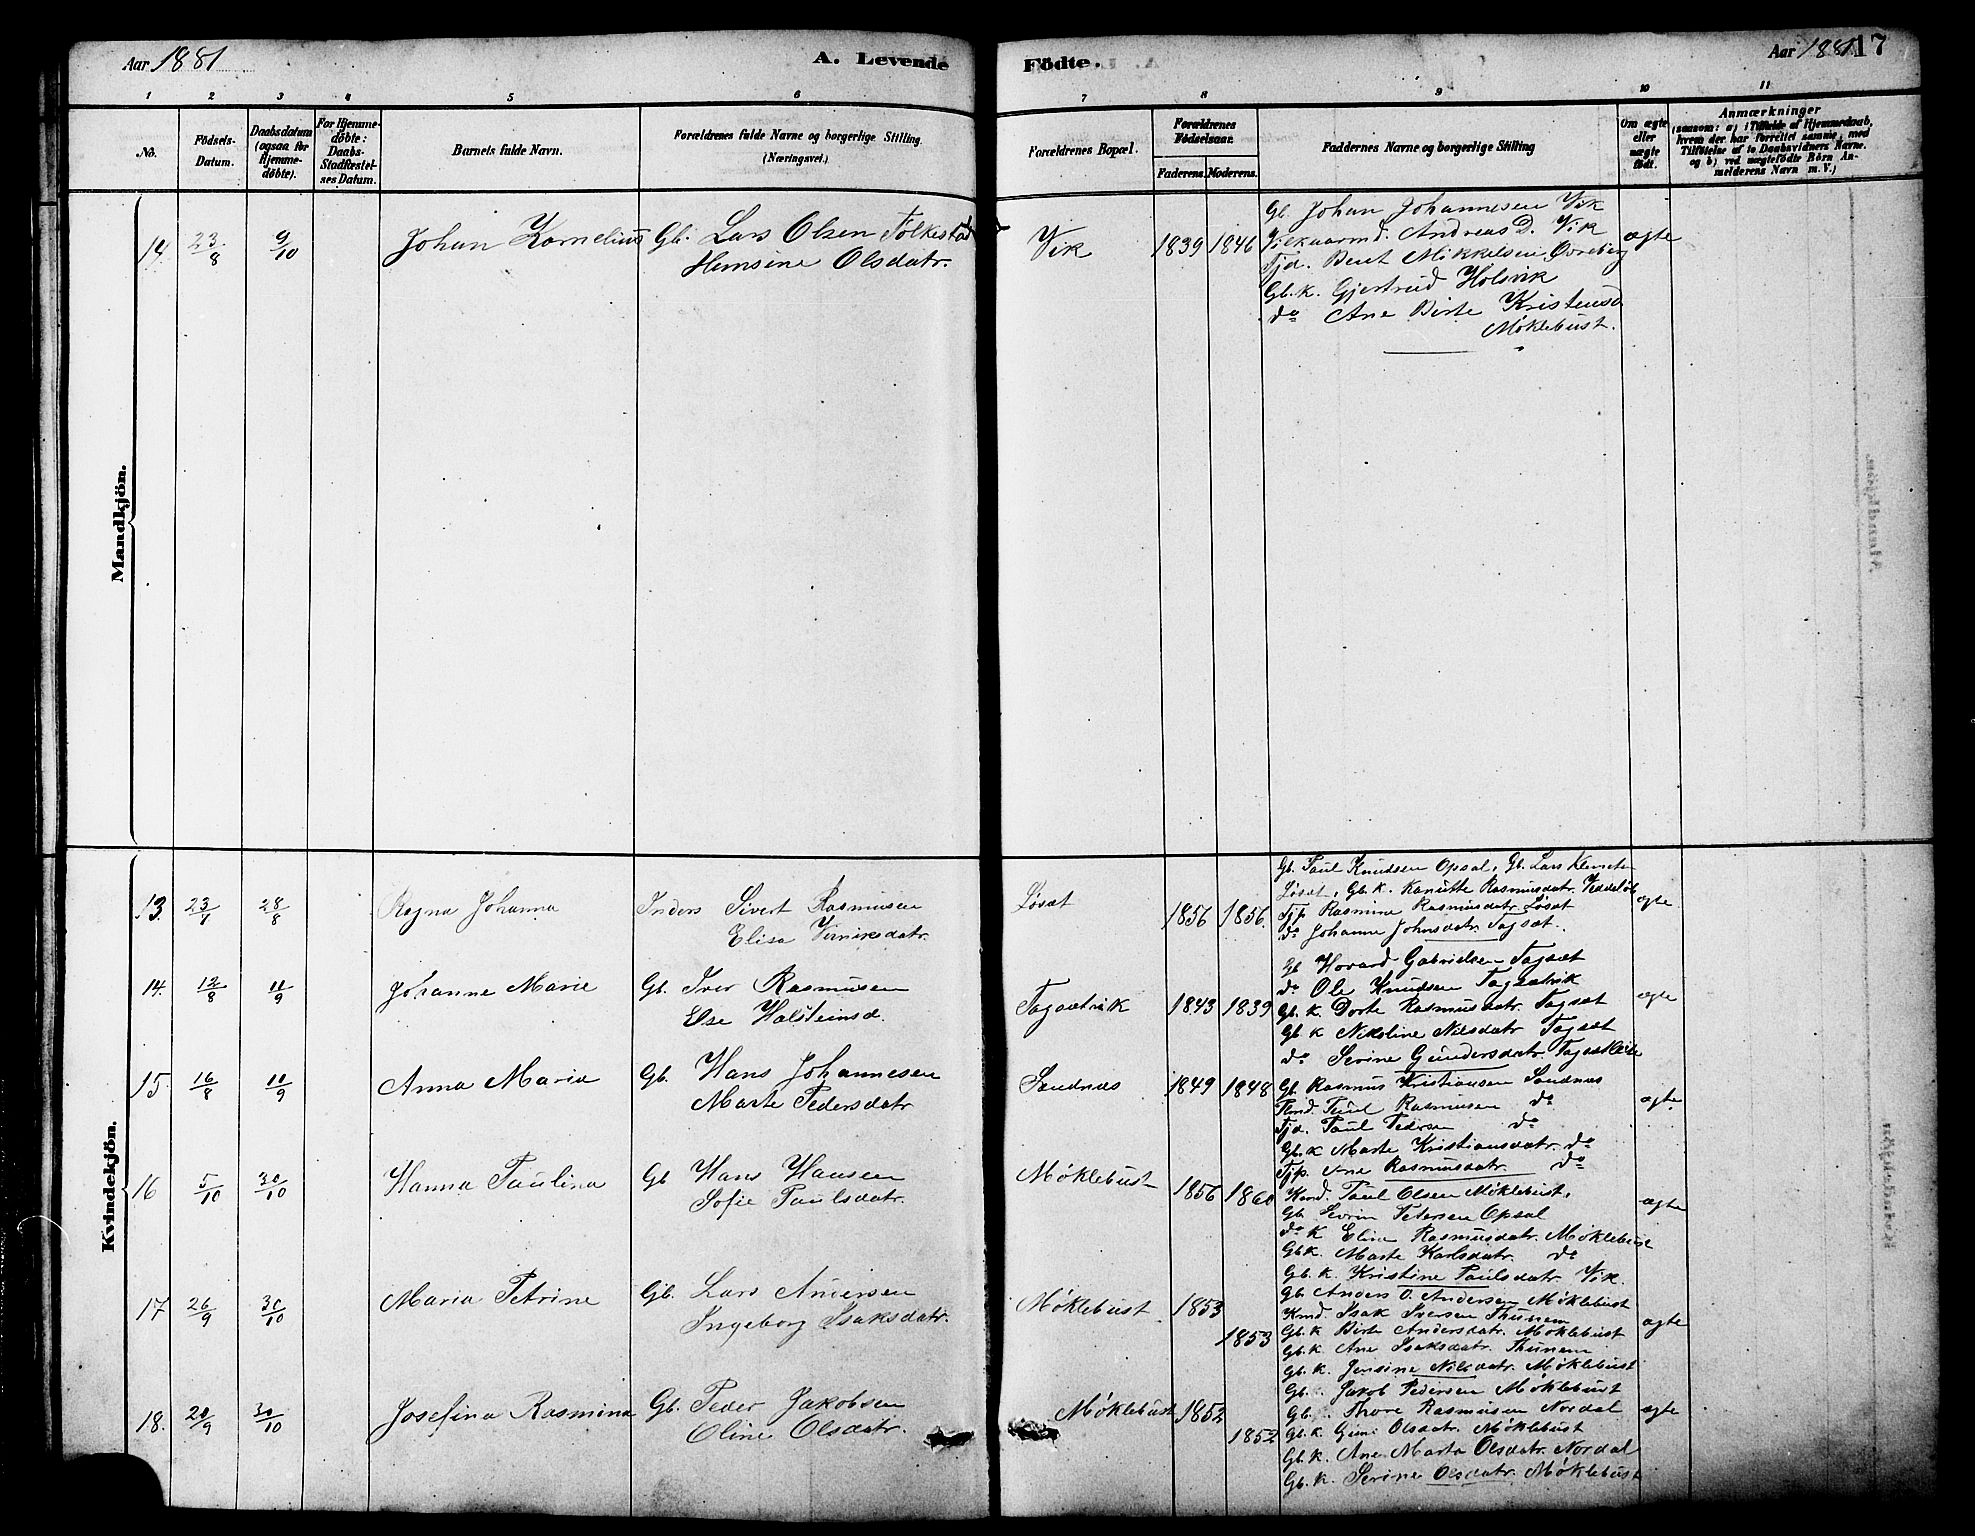 Aar 1881
A. Levende
Födte.
Aar 1881
17
1 2 3 4 5 6 7 8 9 10 11
No.
Födsels-
Datum.
Daabsdatum
(ogsaa for
Hjemme-
döbte).
For Hjemme-
döbte:
Daabs-
Stadfæstel-
ses Datum.
Barnets fulde Navn.
Forældrenes fulde Navne og borgerlige Stilling
(Næringsvei.)
Forældrenes Bopæl.
Forældrenes
Födselsaar.
Faderens. Moderens.
Faddernes Navne og borgerlige Stilling
Om ægte
eller
uægte
födt.
Anmærkninger
(saasom: a) i Tilfælde af Hjemmedaab,
hvem der har forrettet samme, med
Tilföielse af to Daabsvidners Navne,
og b) ved uægtefödte Börn An-
melderens Navn m. V.)
Mandkjön.
14. 23/8 9/10 Johan Kornelius Gb. Lars Olsen Folkestad
Hemsine Olsdatr.
Vik 1839 1846
Gb. Johan Johannesen Vik
Vilkaarmd. Andreas D. Vik
Tjd. Bent Mikkelsen Øvreberg
Gb. K. Gjertrud Holevik
do Ane Birte Kristensd
Møklebust.
ægte
Kvindekjön.
13. 23/7 28/8 Ragna Johanna Inders Sivert Rasmusen
Elisa Viniksdatr.
Løset 1856 1856.
Gb. Paul Knudsen Opsal, Gb. Lars Klemeten
Løset, Gb. K. Kanutte Rasmusdatr.
Tjp. Rasmine Rasmusdatr. Løset
do Johanne Johnsdatr. Tagset.
ægte
14. 12/8 11/9 Johanne Marie Gb. Iver Rasmusen
Else Halsteinsd.
Tagsætvik 1843 1839
Gb Hovard Gabrielsen Tagsæt
do Ole Knudsen Tagsætvik
Gb. K. Dorte Rasmusdatr. Tagsæt
Gb K Nikoline Nilsdatr Tagsæt
do Serine Gundersdatr.
ægte
15. 16/8 11/9 Anna Maria Gb. Hans Johannesen
Marte Pedersdatr
Sandnæs 1849 1848
Gb. Rasmus Kristiansen Sandnæs
Paul Rasmusen do
Tjd. Paul Pedersen do
Gb. K Marte Kristiansdatr. do
Tjp. Ane Rasmusdatr. do
ægte
16 5/10 30/10 Hanna Paulina Gb Hans Hansen
Sofie Paulsdatr.
Møklebust 1856 1860
Kmd. Paul Olsen Møklebust,
Gb. Sevrin Petersen Opsal
do K Eline Rasmusdatr. Møklebust
Gb K. Marte Karlsdatr. do
Gb. K. Kristine Paulsdatr. Vik.
ægte
17 26/9 30/10 Maria Petrine Gb. Lars Andersen
Ingeborg Isaksdatr.
Møklebust 1853 1853
Gb. Anders O. Andersen Møklebust
Kmd. Isak Iversen Thunem
Gb. K Birte Andersdatr. Møklebust
Gb. K. Ane Isaksdatr. Thunem
Gb. K. Jensine Nilsdatr. Møklebust
ægte
18. 20/9 30/10 Josefina Rasmina Gb. Peder Jakobsen
Oline Olsdatr.
Møklebust 1852 1852
Gb. Jakob Pedersen Møklebust
Gb. Thore Rasmusen Nordal
Gb. K Olsdatr. Møklebust
Gb. K. Ane Marta Olsdatr. Nordal
Gb. K. Serine Olsdatr. Møklebust
ægte